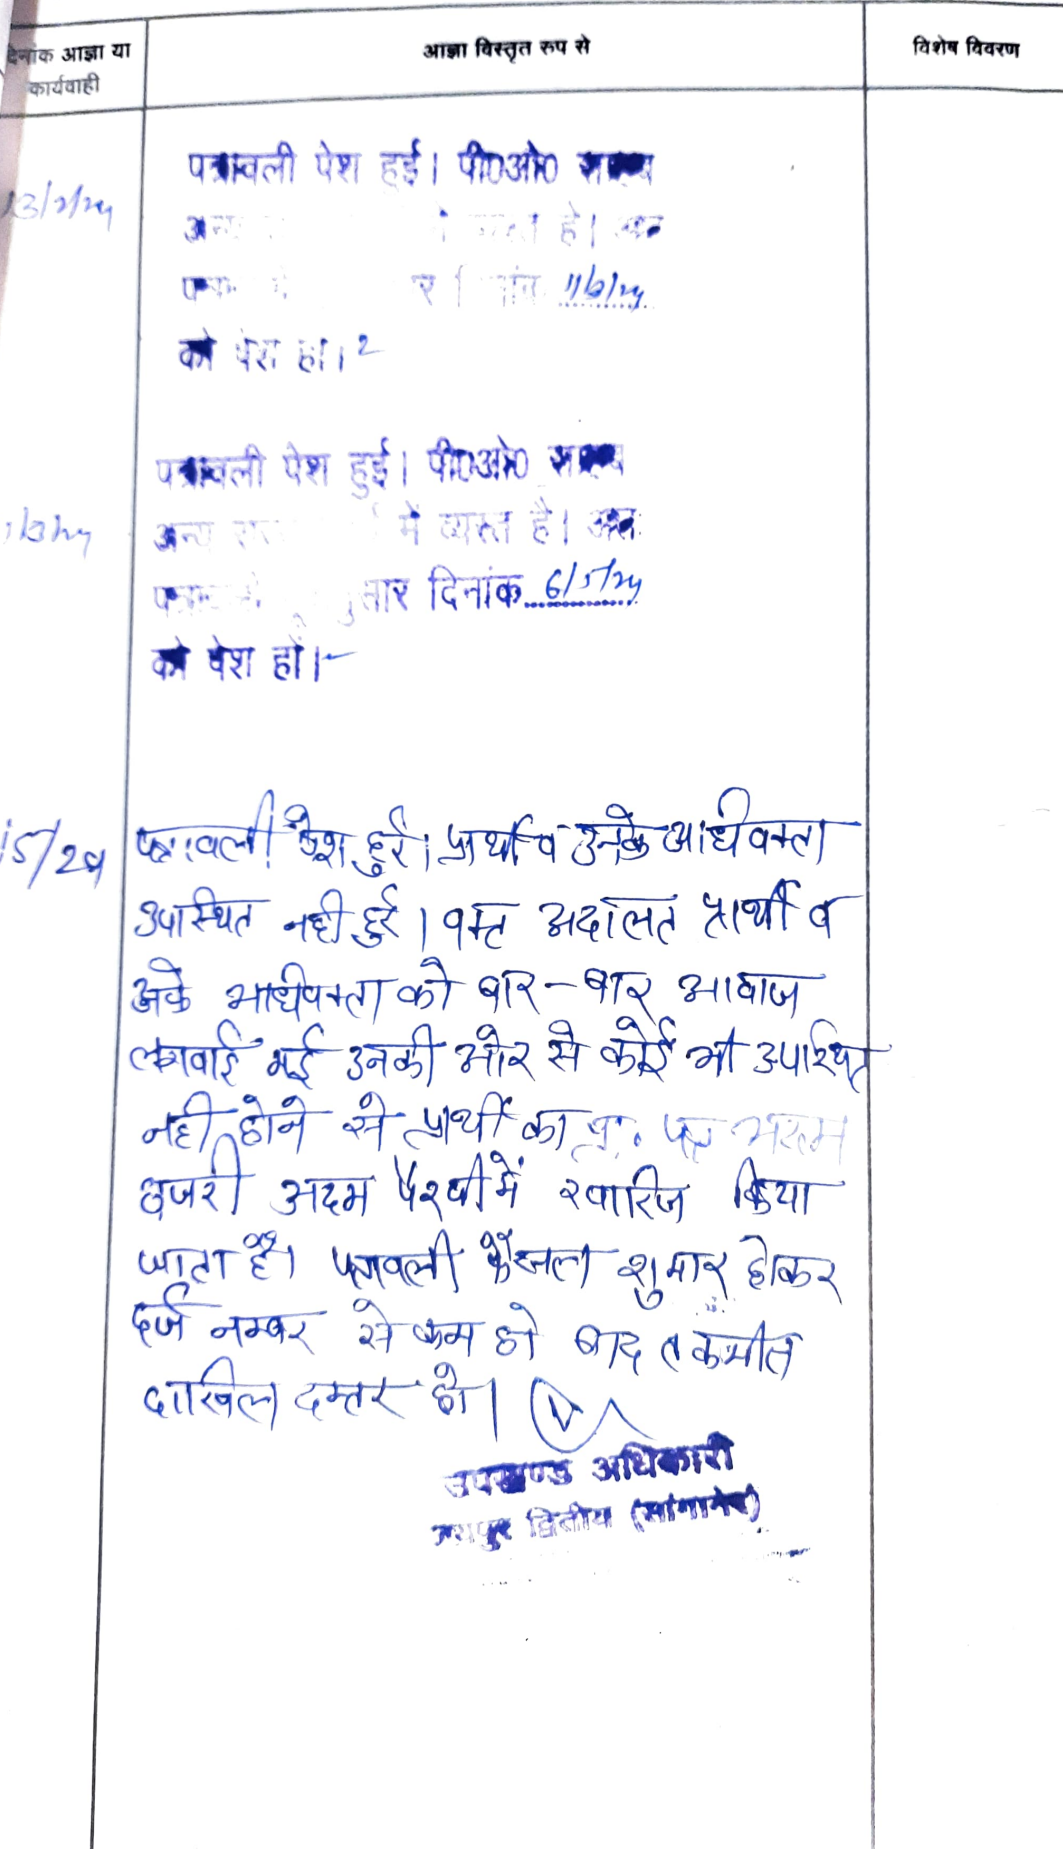 दिनांक आज्ञा या
कार्यवाही
आज्ञा विस्तृत रुप से
विशेष विवरण
पत्रावली पेश हुई। पी0ओ0
अन्य है।
11/3/24
को पेश हो।
पत्रावली पेश हुई। पी0ओ0
अन्य में व्यस्त है। अतः
दिनांक 6/5/24
को पेश हों।
पत्रावली पेश हुई। प्रार्थी व उनके अधिवक्ता
उपस्थित नही हुई। वक्त अदालत प्रार्थी व
उनके अधिवक्ता को बार-बार आवाज
लगवाई गई उनकी ओर से कोई भी उपस्थित
नही होने से प्रार्थी का प्रा. पत्र अदम
हाजरी अदम पैरवी में खारिज किया
जाता है। पत्रावली फैसल शुमार होकर
दर्ज नम्बर से कम हो बाद तकमील
दाखिल दफ्तर हो।
उपखण्ड अधिकारी
जयपुर द्वितीय (सांगानेर)